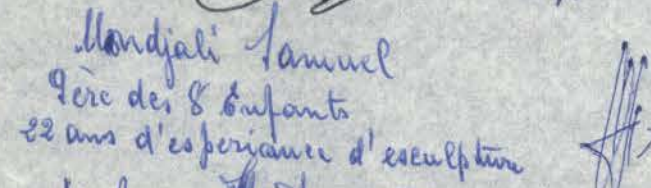 Mondjali Samuel
Père des 8 Enfants
22 ans d'esperiance d'esculpture